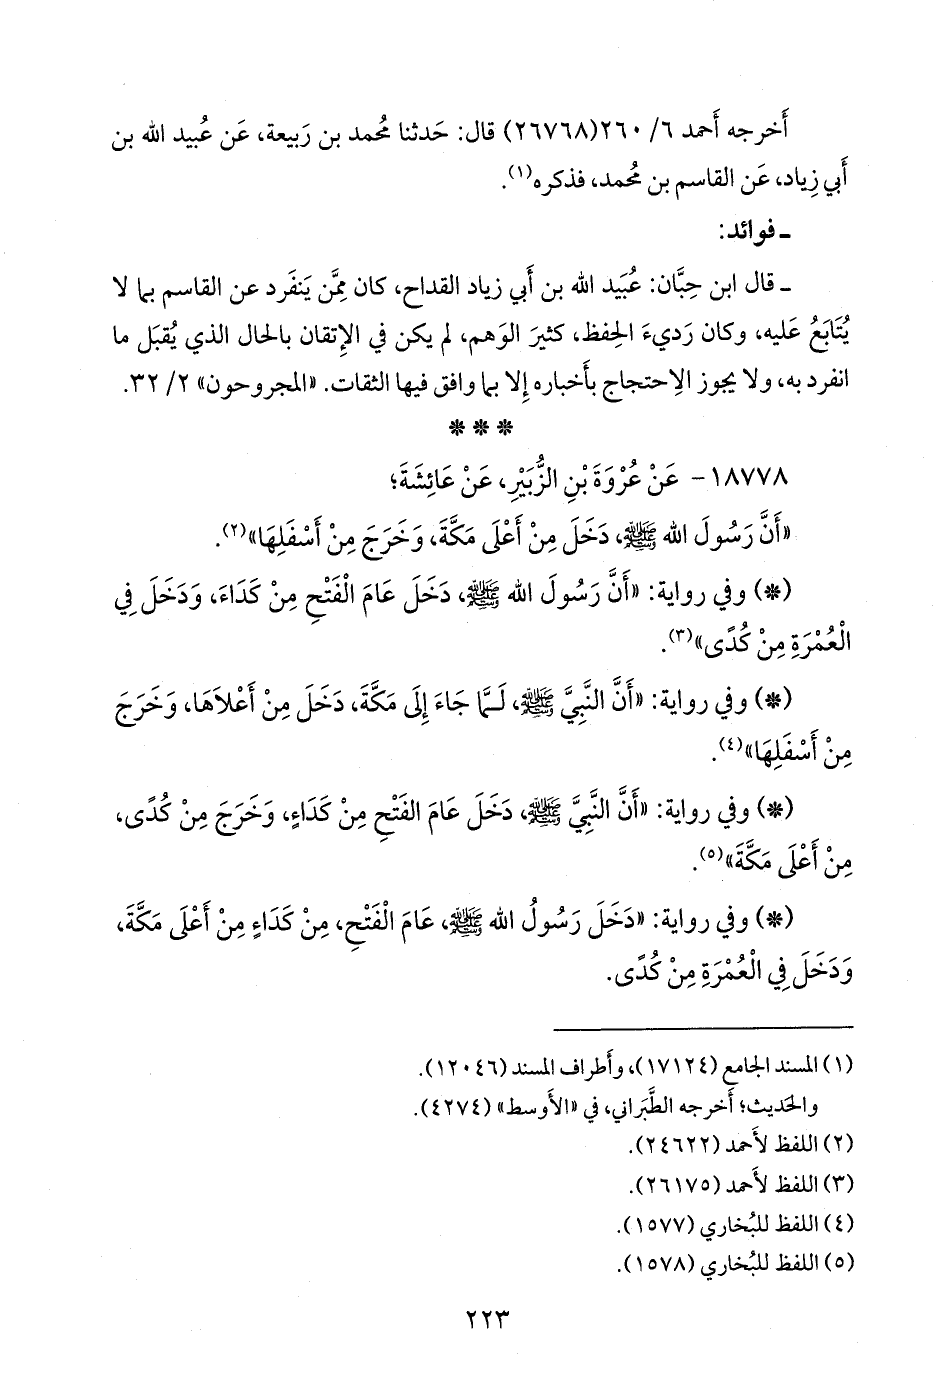 أَخرجه أَحمد ٦/ ٢٦٠(٢٦٧٦٨) قال: حَدثنا مُحمد بن رَبيعة، عَن عُبيد الله بن
أَبي زِياد، عَن القاسم بن مُحمد، فذكره(١).
ـ فوائد:
ـ قال ابن حِبَّان: عُبَيد الله بن أَبي زياد القداح، كان مِمَّن يَنفَرد عن القاسم بما لا
يُتَابَعُ عَليه، وكان رَديءَ الحِفظ، كثيرَ الوَهم، لم يكن في الإِتقان بالحال الذي يُقبَل ما
انفرد به، ولا يجوز الاِحتجاج بأَخباره إِلا بما وافق فيها الثقات. «المجروحون» ٢/ ٣٢.
* * *
١٨٧٧٨- عَنْ عُرْوَةَ بْنِ الزُّبَيْرِ، عَنْ عَائِشَةَ؛
«أَنَّ رَسُولَ الله ﷺ، دَخَلَ مِنْ أَعْلَى مَكَّةَ، وَخَرَجَ مِنْ أَسْفَلِهَا»(٢).
(*) وفي رواية: «أَنَّ رَسُولَ الله ﷺ، دَخَلَ عَامَ الْفَتْحِ مِنْ كَدَاءَ، وَدَخَلَ فِي
الْعُمْرَةِ مِنْ كُدًى»(٣).
(*) وفي رواية: «أَنَّ النَّبِيَّ ﷺ، لَـمَّا جَاءَ إِلَى مَكَّةَ، دَخَلَ مِنْ أَعْلاَهَا، وَخَرَجَ
مِنْ أَسْفَلِهَا»(٤).
(*) وفي رواية: «أَنَّ النَّبِيَّ ﷺ، دَخَلَ عَامَ الفَتْحِ مِنْ كَدَاءٍ، وَخَرَجَ مِنْ كُدًى،
مِنْ أَعْلَى مَكَّةَ»(٥).
(*) وفي رواية: «دَخَلَ رَسُولُ الله ﷺ، عَامَ الْفَتْحِ، مِنْ كَدَاءٍ مِنْ أَعْلَى مَكَّةَ،
وَدَخَلَ فِي الْعُمْرَةِ مِنْ كُدًى.
(١) المسند الجامع (١٧١٢٤)، وأَطراف المسند (١٢٠٤٦).
والحَديث؛ أَخرجه الطَّبَراني، في «الأَوسط» (٤٢٧٤).
(٢) اللفظ لأَحمد (٢٤٦٢٢).
(٣) اللفظ لأَحمد (٢٦١٧٥).
(٤) اللفظ للبُخاري (١٥٧٧).
(٥) اللفظ للبُخاري (١٥٧٨).
٢٢٣